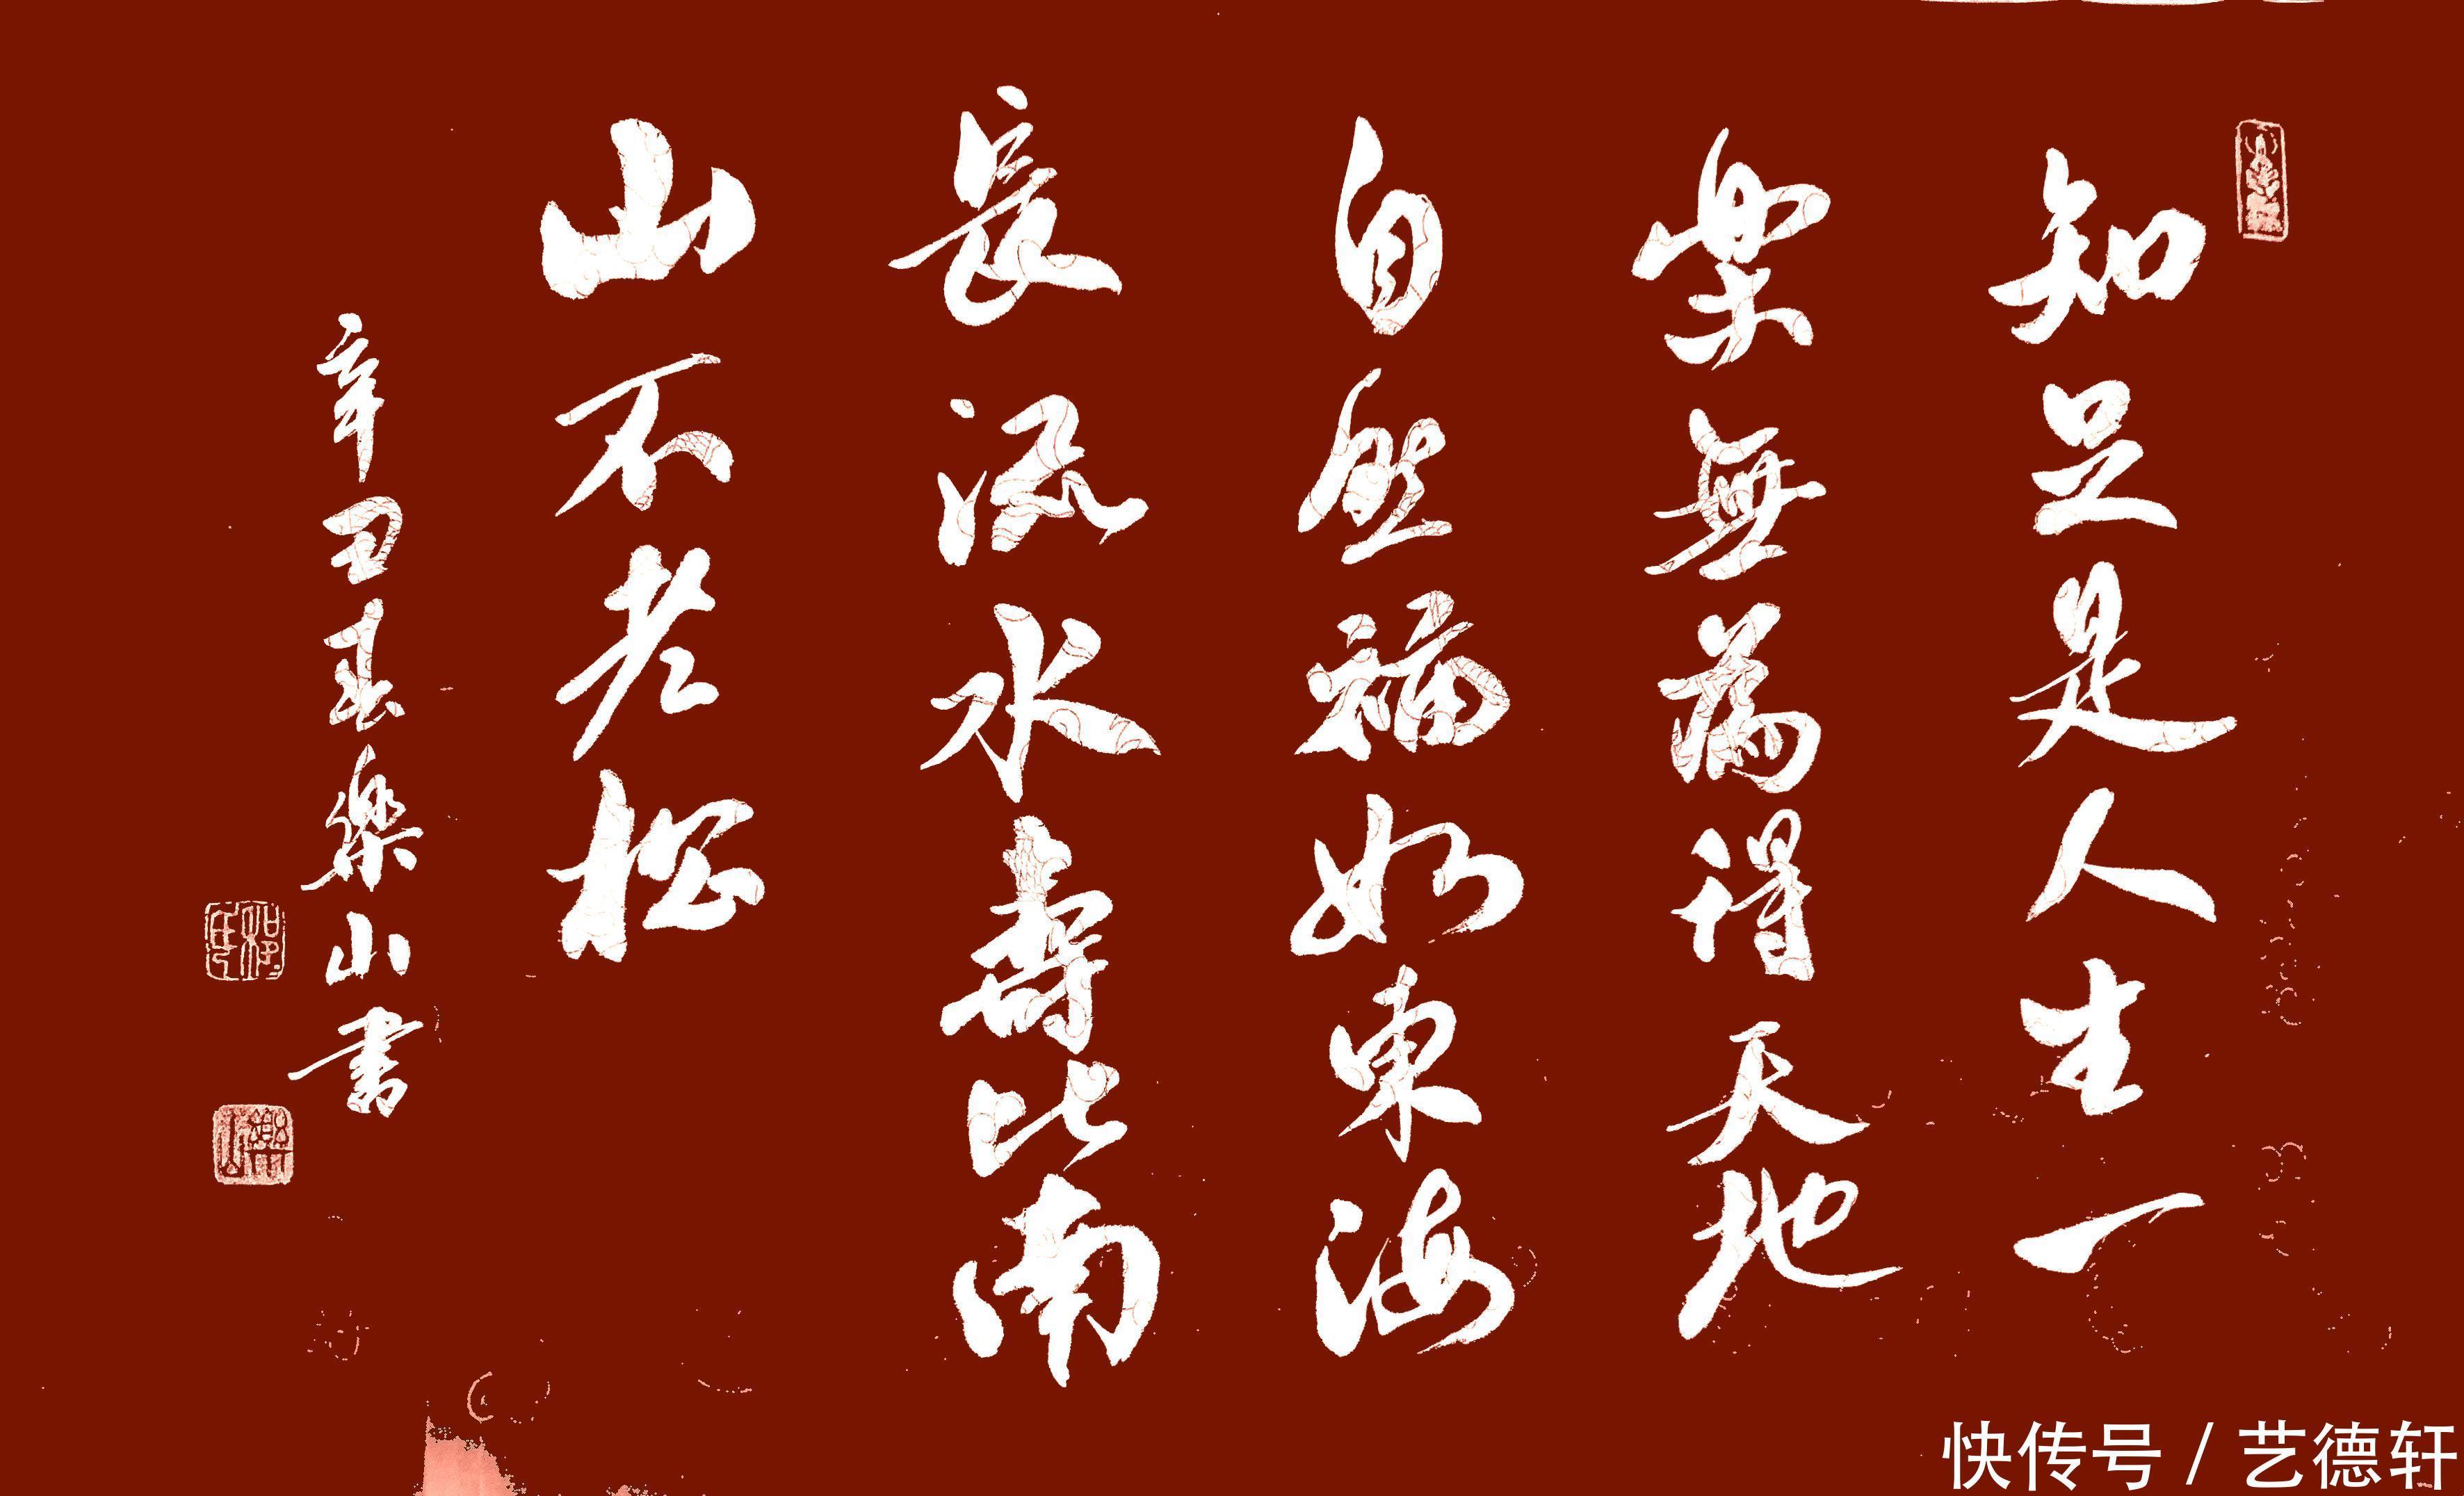 知足是人生一
樂無為得天地
自然福如東海
長流水壽比南
山不老松
辛丑春樂山書
快传号 / 艺德轩